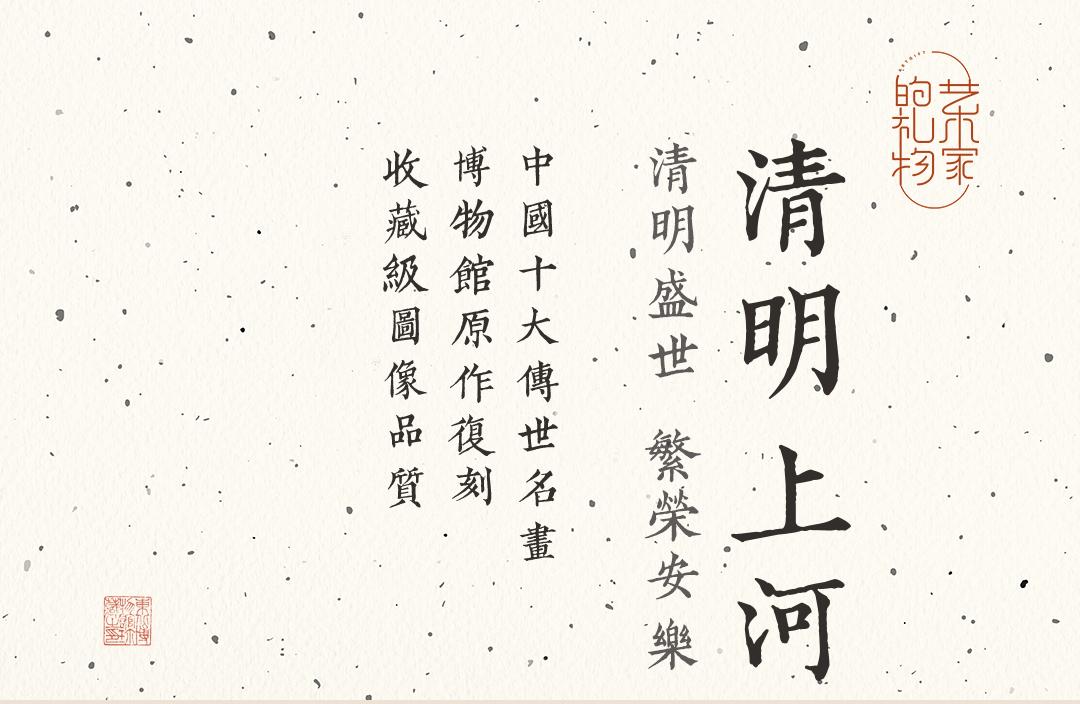 艺术家
的礼物
清明上河
清明盛世 繁榮安樂
中國十大傳世名畫
博物館原作復刻
收藏級圖像品質